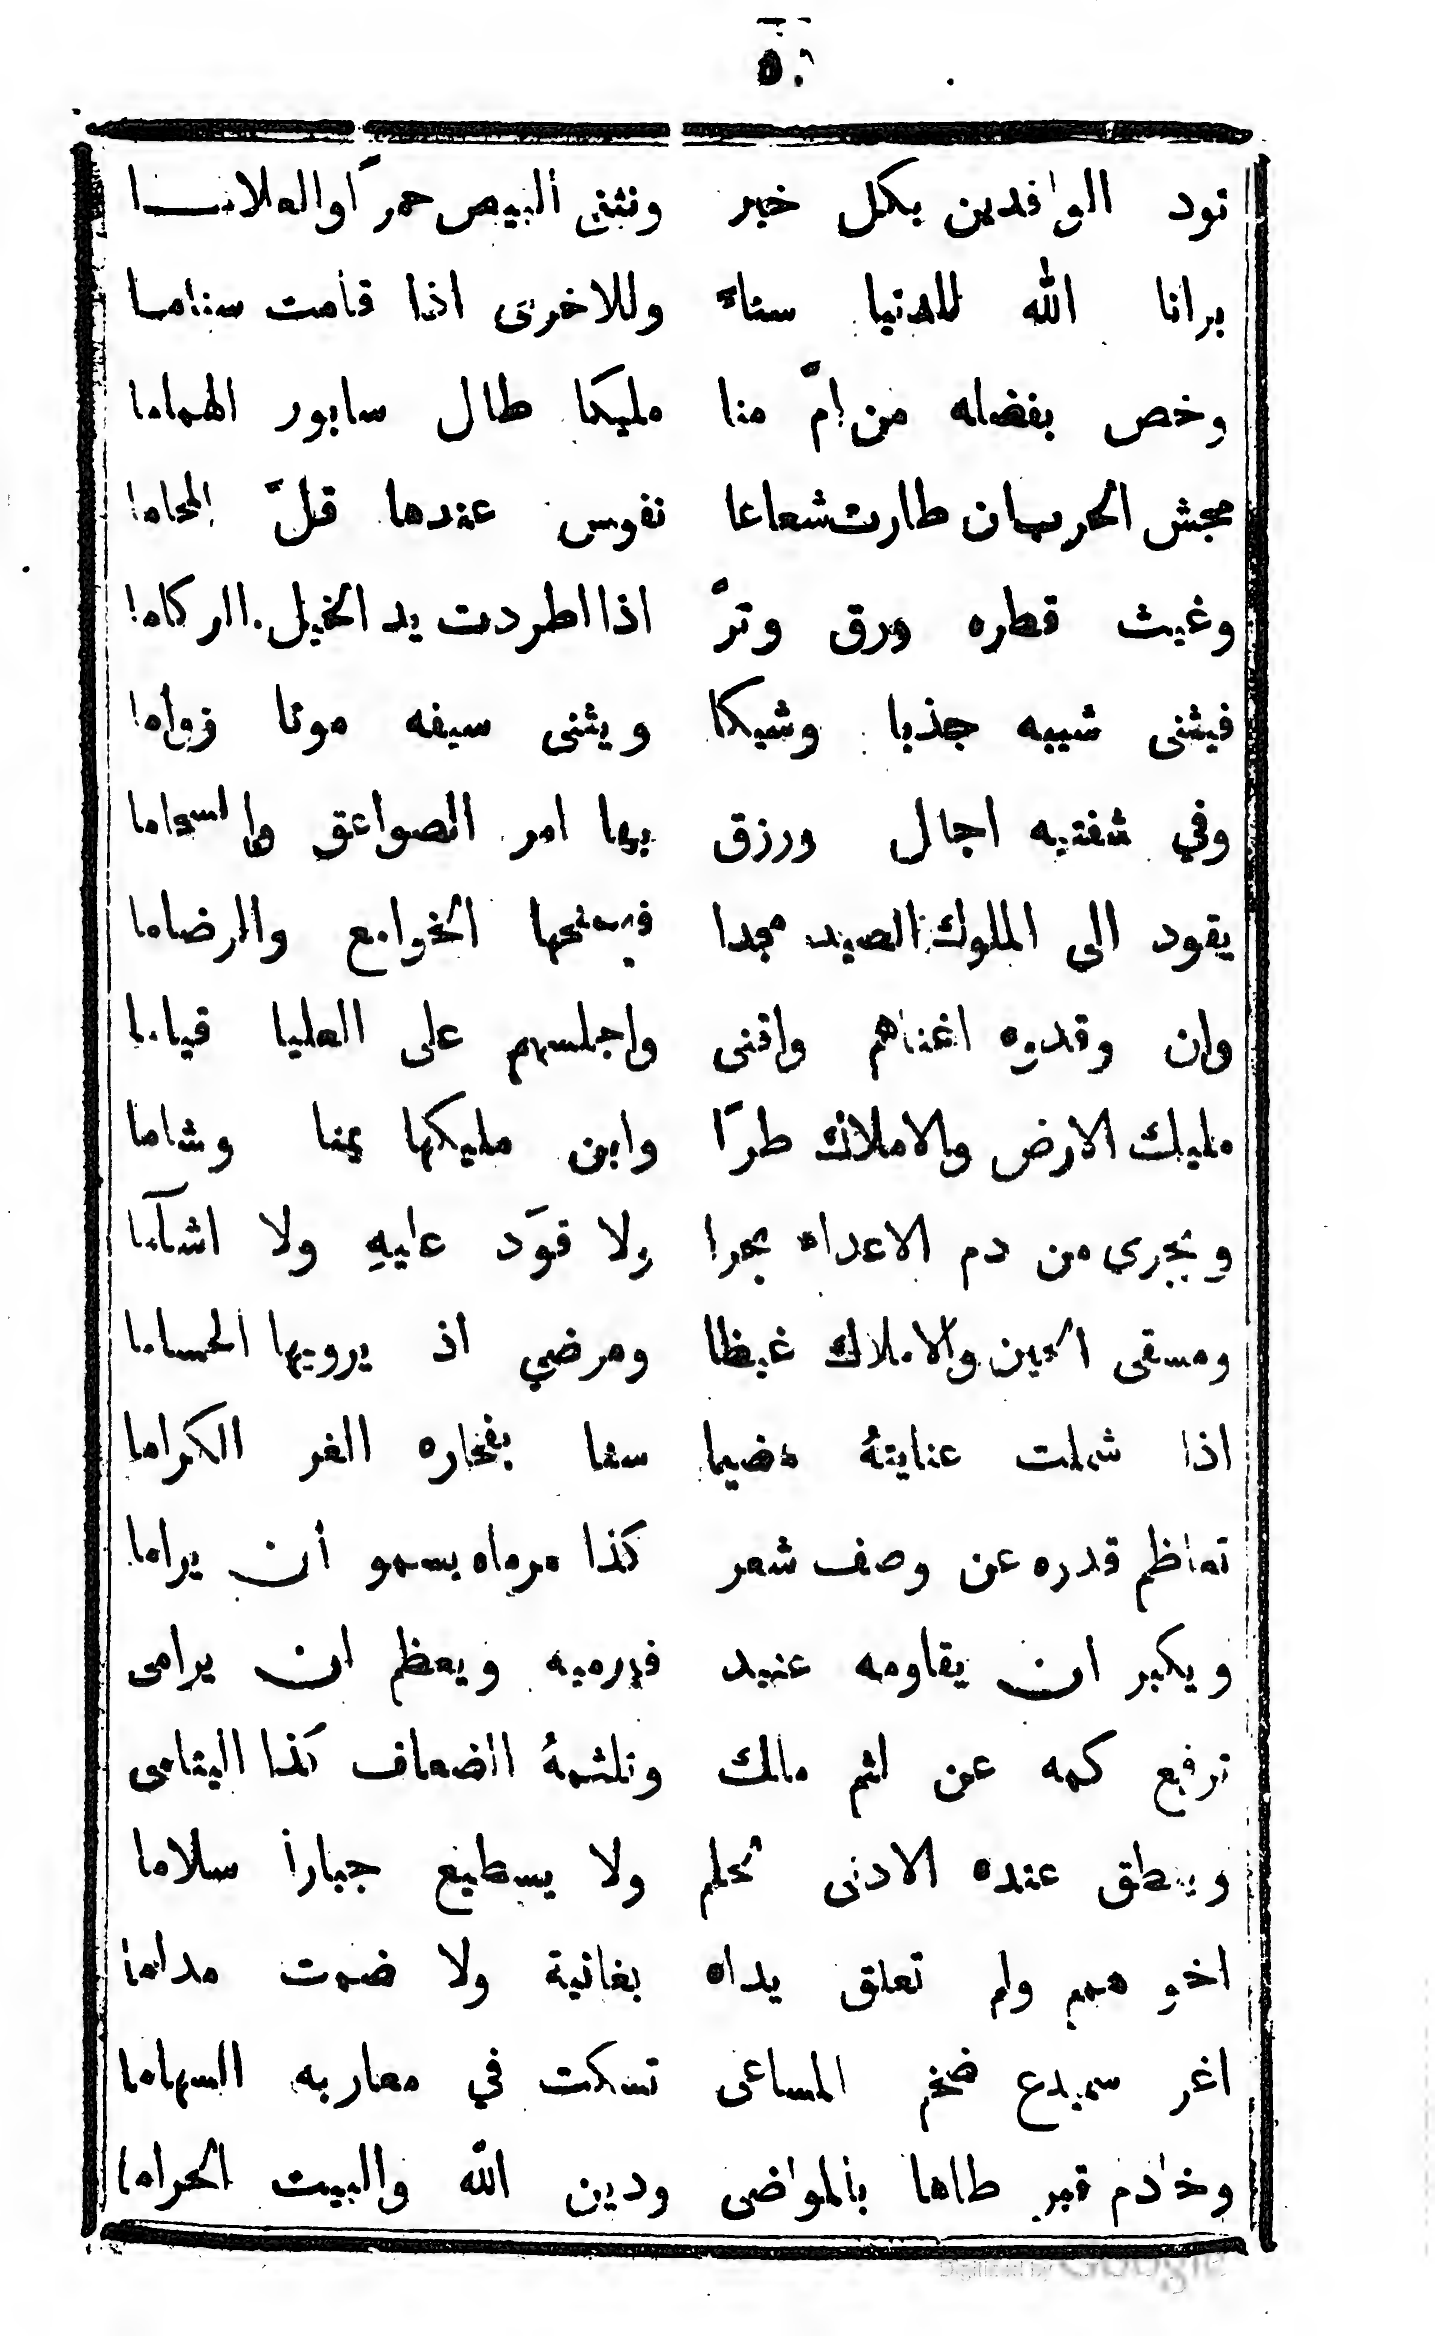 ٥٠
تود الوافدين بكل خير ونثني البيض حمرًا والعلاما
برانا الله للدنيا سناء وللاخرى اذا قامت سناما
وخص بفضله من امّ منا مليكا طال سابور الهماما
مجش الحرب ان طارت شعاعا نفوس عندها قلّ المحاما
وغيث قطره ورق وترّ اذا اطردت يد الخيل الركاما
فيثنى شيبه جذبا وشيكا ويثنى سيفه موتا زواما
وفي شفتيه اجال ورزق بها امر الصواعق والسجاما
يقود الى الملوك الصيد مجدا فيمنحها الخوامع والرضاما
وان وقدوه اغناهم واقنى واجلسهم على العليا قياما
مليك الارض والاملاك طرًا وابن مليكها يمنا وشاما
ويجرى من دم الاعداء بحرا ولا قوَد عليهِ ولا اشآما
ومسقى الحين والاملاك غيظا ومرضي اذ يرويها الحساما
اذا شملت عنايتهُ مضيما سما بفخاره الغر الكراما
تعاظم قدره عن وصف شعر كذا مرماه يسمو أن يراما
ويكبر ان يقاومه عنيد فيرميه ويعظم ان يرامى
ترفع كمه عن لثم مالك وتلثمهُ الضعاف كذا اليتامى
وينطق عنده الادنى لحلم ولا يسطيع جبارا سلاما
اخو همم ولم تعلق يداه بغانية ولا ضمت مداما
اغر سميدع ضخم المساعى تسكت في معاربه السهاما
وخادم قبر طاها بالمواضى ودين الله والبيت الحراما
Digitized by Google